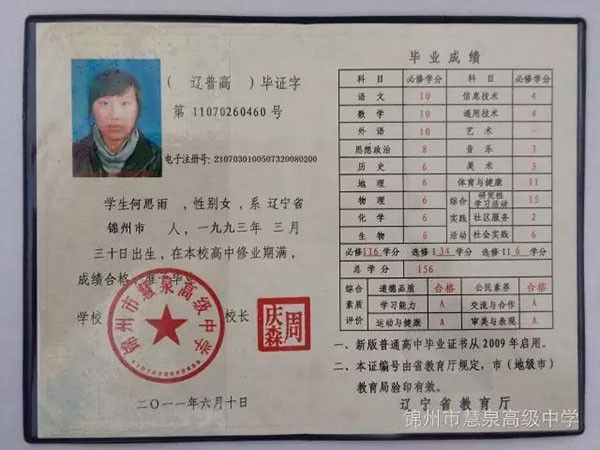 ( 辽普高 ) 毕证字
第 11070260460 号
电子注册号: 2107030100507320080200
学生何思雨 ,性别女 ,系 辽宁省
锦州市 人,一九九三年 三月
三十日出生,在本校高中修业期满,
成绩合格,准予毕业。
学校 校长
锦州市慧泉高级中学
周庆森
二〇一一年六月十日
毕业成绩
科目 必修学分 科目 必修学分
语文 10 信息技术 4
数学 10 通用技术 4
外语 10 艺术 -
思想政治 8 音乐 3
历史 6 美术 3
地理 6 体育与健康 11
物理 6 综合实践活动 研究性学习活动 15
化学 6 社区服务 2
生物 6 社会实践 6
必修116学分 选修Ⅰ 34 学分 选修Ⅱ 6 学分
总学分 156
综合素质评价 道德品质 合格 公民素养 合格
学习能力 A 交流与合作 A
运动与健康 A 审美与表现 A
一、新版普通高中毕业证书从2009年启用。
二、本证编号由省教育厅规定,市(地级市)
教育局验印有效。
辽宁省教育厅
锦州市慧泉高级中学